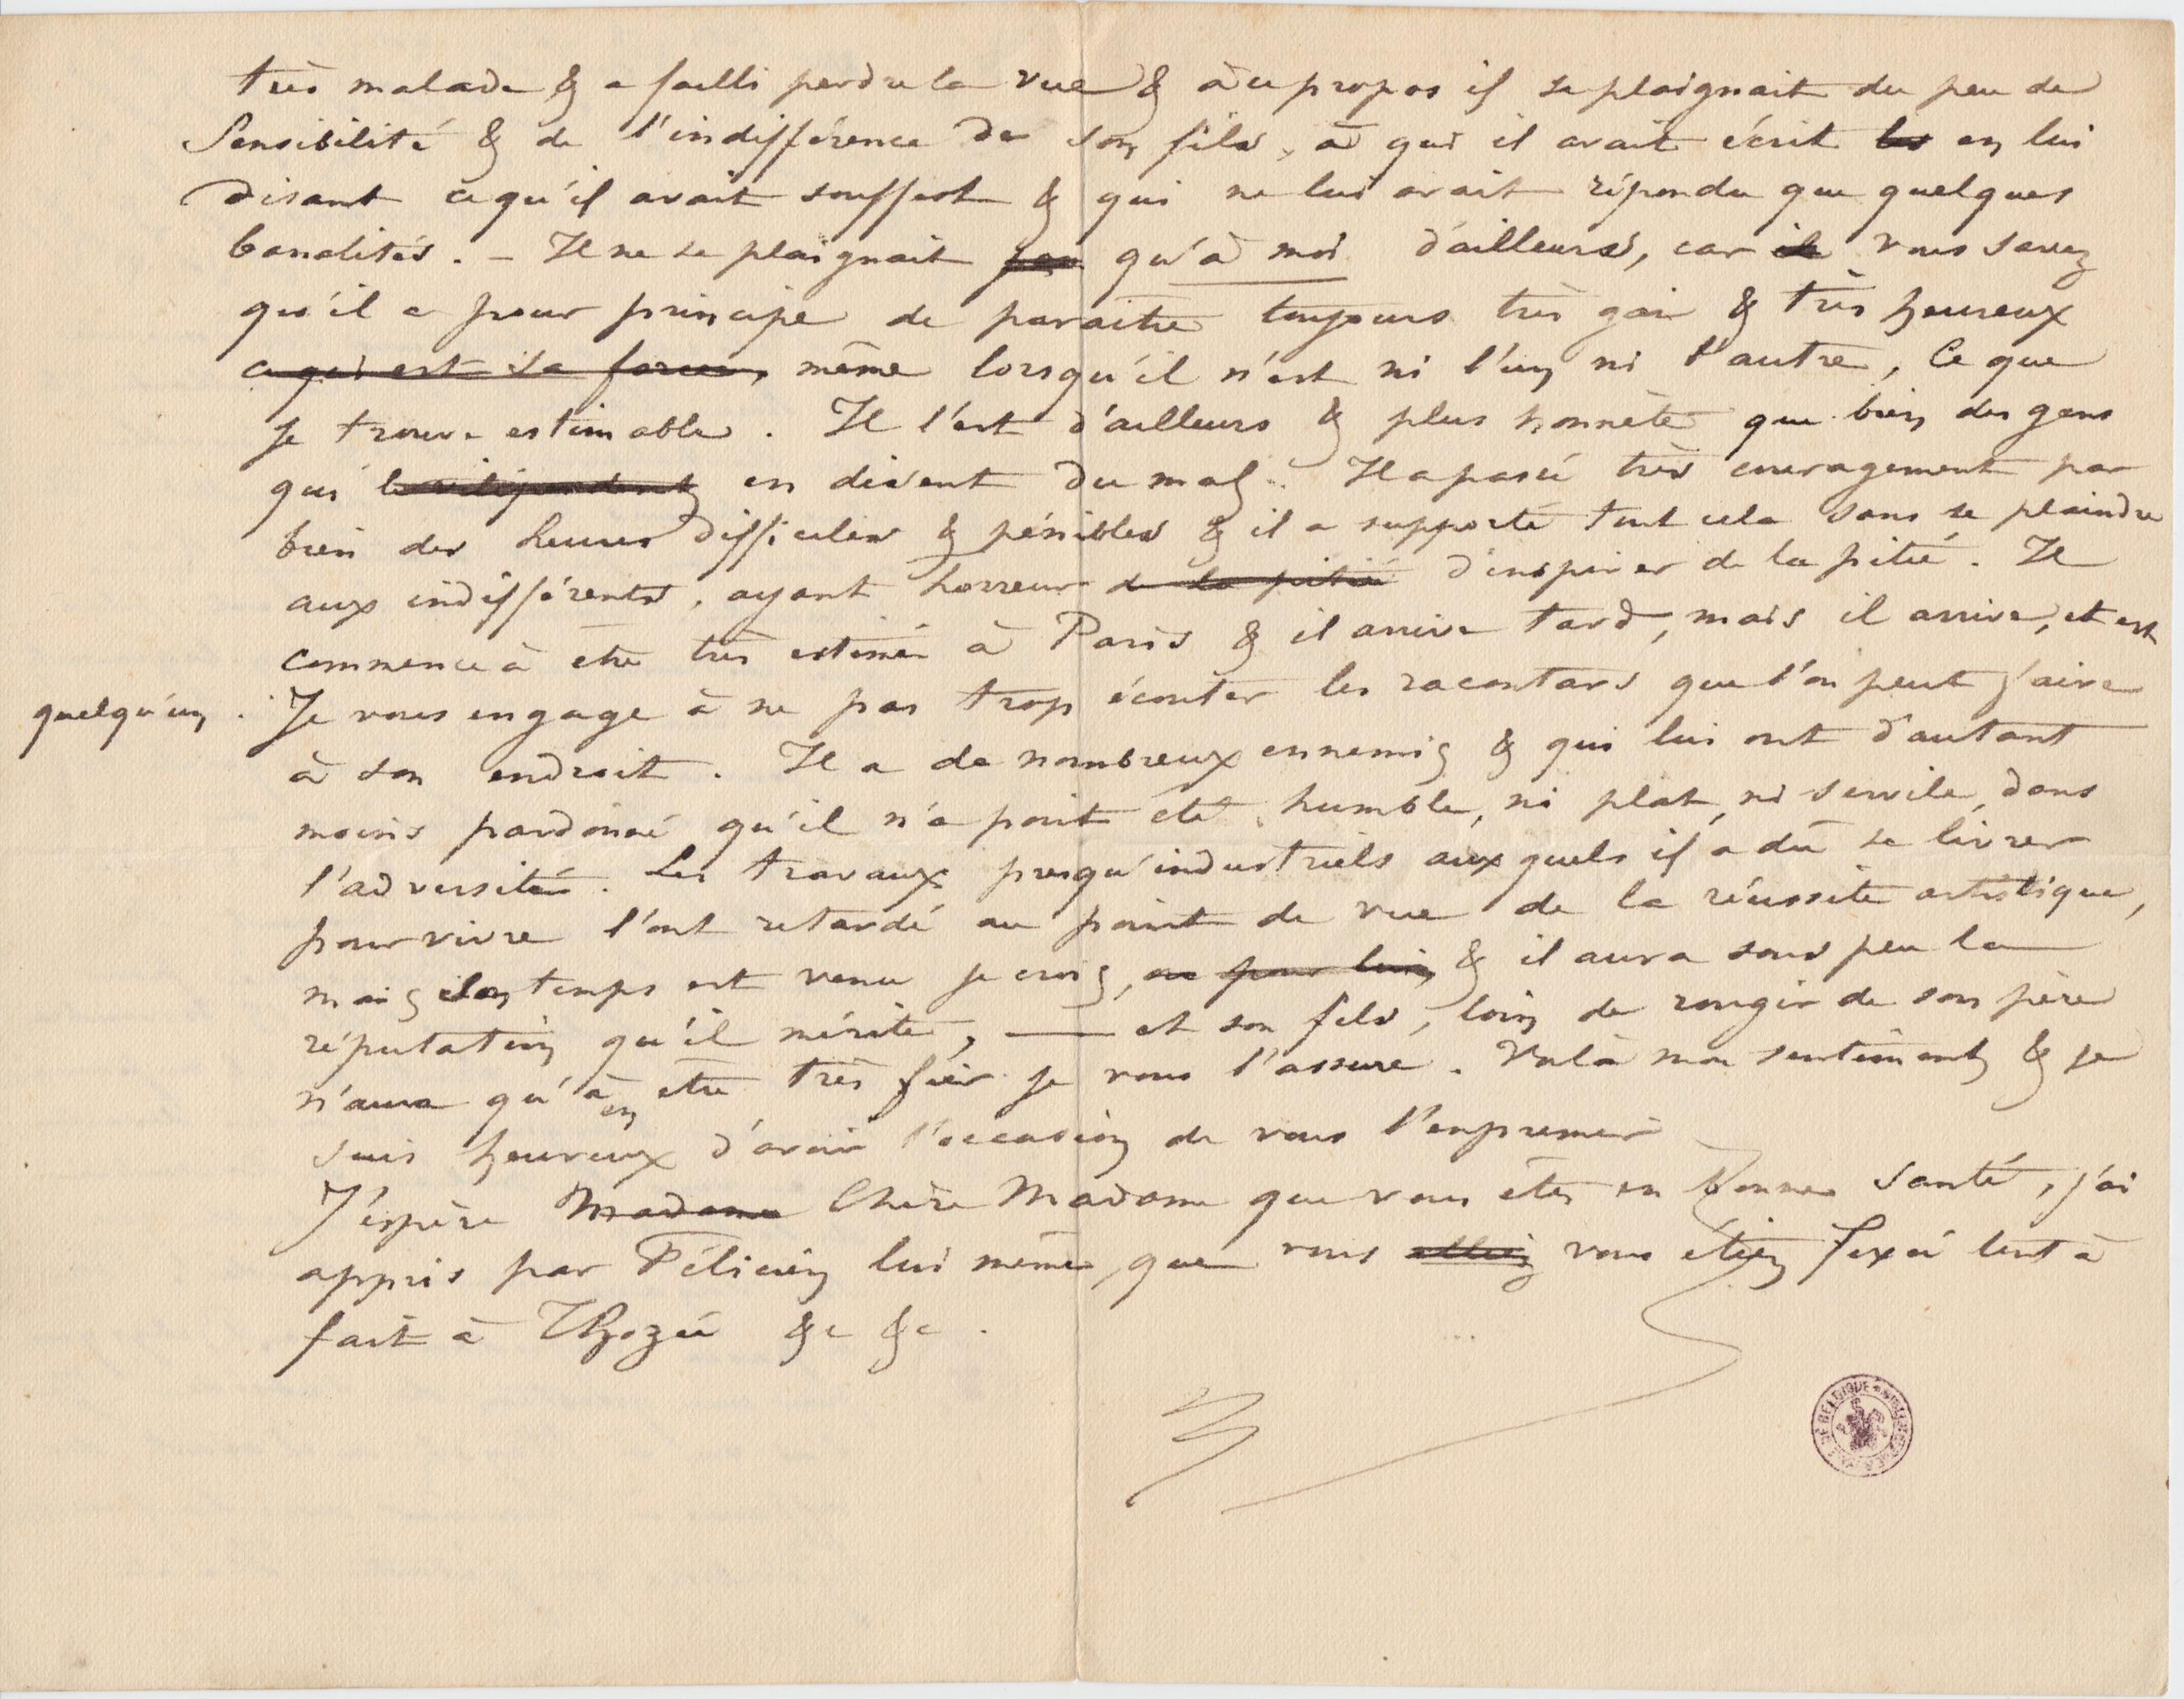 très malade & a failli perdre la vue & à ce propos il se plaignait du peu de
Sensibilité & de l'indifférence de son fils, à qui il avait écrit les en lui
disant ce qu'il avait souffert & qui ne lui avait répondu que quelques
banalités. – Il ne se plaignait pas qu'à moi d'ailleurs, car il vous savez
qu'il a pour principe de paraitre toujours très gai & très heureux
ce qui est sa force, même lorsqu'il n'est ni l'un ni l'autre, Ce que
je trouve estimable. Il l'est d'ailleurs & plus honnête que bien des gens
qui le vilipendent en disent du mal. Il a passé très courageument par
bien des heures difficiles & pénibles & il a supporté tout cela sans se plaindre
aux indifférents, ayant horreur de la pitié d'inspirer de la pitié. Il
commence à etre très estimé à Paris & il arrive tard, mais il arrive, et est
quelqu'un. Je vous engage à ne pas trop écouter les racontars que l'on peut faire
à son endroit. Il a de nombreux ennemis & qui lui ont d'autant
moins pardonné qu'il n'a point eté humble, ni plat, ni servile, dans
l'adversité. Les travaux presqu'industriels aux quels il a dû se livrer
pour vivre l'ont retardé au point de vue de la réussite artistique,
mais son temps est venu je crois, & il aura sous peu la
réputation qu'il mérite, — et son fils, loin de rougir de son père
n'aura qu'à en etre très fier je vous l'assure. Voilà mon sentiment & je
suis heureux d'avoir l'occasion de vous l'exprimer
J'espère Madame Chère Madame que vous etes en bonne santé, j'ai
appris par Félicien lui même, que vous alliez vous étiez fixée tout à
fait à Thozée &c &c.